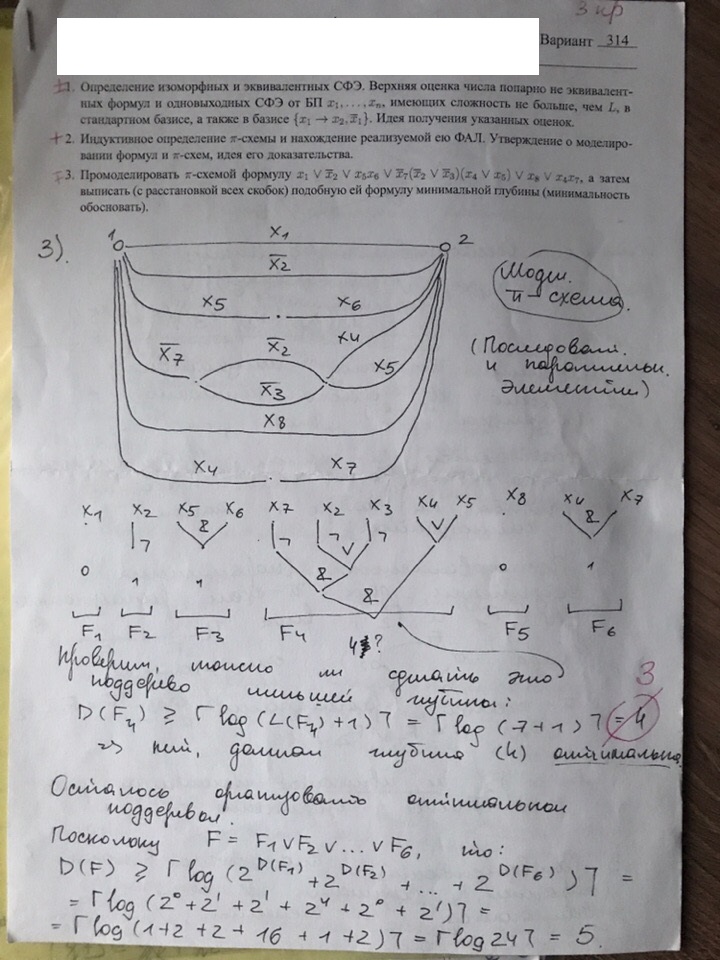 3 кр
Вариант 314
±1. Определение изоморфных и эквивалентных СФЭ. Верхняя оценка числа попарно не эквивалент-
ных формул и одновыходных СФЭ от БП x₁, . . . , xₙ, имеющих сложность не больше, чем L, в
стандартном базисе, а также в базисе {x₁ → x₂, x̅₁}. Идея получения указанных оценок.
+ 2. Индуктивное определение π-схемы и нахождение реализуемой ею ФАЛ. Утверждение о моделиро-
вании формул и π-схем, идея его доказательства.
3. Промоделировать π-схемой формулу x₁ ∨ x̅₂ ∨ x₅x₆ ∨ x̅₇(x̅₂ ∨ x̅₃)(x₄ ∨ x₅) ∨ x₈ ∨ x₄x₇, а затем
выписать (с расстановкой всех скобок) подобную ей формулу минимальной глубины (минимальность
обосновать).
3).
1 x₁ 2
x̅₂
x₅ x₆
x̅₇ x̅₂ x₄
x̅₃ x₅
x₈
x₄ x₇
Модел.
π-схема.
(Последоват.
и параллельн.
элементы)
x₁ x₂ x₅ x₆ x₇ x₂ x₃ x₄ x₅ x₈ x₄ x₇
¬ & ¬ ¬ ¬ ∨ &
∨
0 1 1 & 0 1
&
F₁ F₂ F₃ F₄ F₅ F₆
4 ?
Проверим, можно ли сделать это
поддерево меньшей глубины:
3
D(F₄) ≥ ⌈log(L(F₄)+1)⌉ = ⌈log(7+1)⌉ = 4
=> нет, данная глубина (4) оптимальна.
Осталось организовать оптимальном
поддеревья.
Поскольку F = F₁ ∨ F₂ ∨ ... ∨ F₆, то:
D(F) ≥ ⌈log(2^D(F₁) + 2^D(F₂) + ... + 2^D(F₆))⌉ =
= ⌈log(2⁰ + 2¹ + 2¹ + 2⁴ + 2⁰ + 2¹)⌉ =
= ⌈log(1+2+2+16+1+2)⌉ = ⌈log24⌉ = 5.